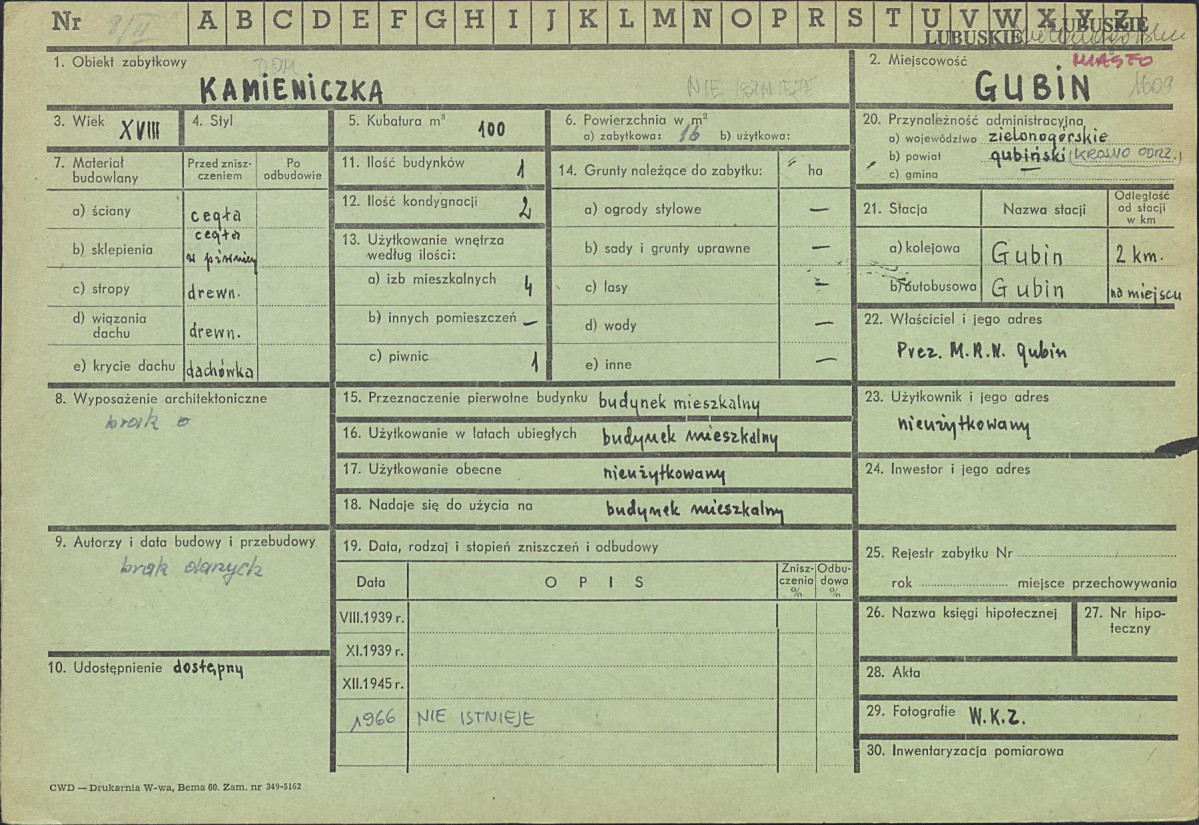 Nr 8/II A B C D E F G H I J K L M N O P R S T U V W X Y Z
LUBUSKIE LUBUSKIE
1. Obiekt zabytkowy DOM
KAMIENICZKA NIE ISTNIEJE
2. Miejscowość MIASTO
GUBIN 1609
3. Wiek XVIII
4. Styl
5. Kubatura m³ 100
6. Powierzchnia w m²
a) zabytkowa: 16 b) użytkowa:
20. Przynależność administracyjna
a) województwo zielonogórskie
b) powiat gubiński (KROSNO ODRZ.)
c) gmina
7. Materiał budowlany
Przed znisz-
czeniem
Po
odbudowie
a) ściany cegła
b) sklepienia cegła
w piwnicy
c) stropy drewn.
d) wiązania
dachu drewn.
e) krycie dachu dachówka
11. Ilość budynków 1
12. Ilość kondygnacji 2
13. Użytkowanie wnętrza
według ilości:
a) izb mieszkalnych 4
b) innych pomieszczeń —
c) piwnic 1
14. Grunty należące do zabytku: ha
a) ogrody stylowe —
b) sady i grunty uprawne —
c) lasy —
d) wody —
e) inne —
21. Stacja Nazwa stacji
Odległość
od stacji
w km
a) kolejowa Gubin 2 km.
b) autobusowa Gubin na miejscu
22. Właściciel i jego adres
Prez. M.R.N. Gubin
8. Wyposażenie architektoniczne
brak
15. Przeznaczenie pierwotne budynku budynek mieszkalny
16. Użytkowanie w latach ubiegłych budynek mieszkalny
17. Użytkowanie obecne nieużytkowany
18. Nadaje się do użycia na budynek mieszkalny
23. Użytkownik i jego adres
nieużytkowany
24. Inwestor i jego adres
9. Autorzy i data budowy i przebudowy
brak danych
19. Data, rodzaj i stopień zniszczeń i odbudowy
Data OPIS
Znisz-
czenia
%
Odbu-
dowa
%
VIII.1939 r.
XI.1939 r.
XII.1945 r.
1966 NIE ISTNIEJE
25. Rejestr zabytku Nr
rok miejsce przechowywania
26. Nazwa księgi hipotecznej
27. Nr hipo-
teczny
10. Udostępnienie dostępny
28. Akta
29. Fotografie W.K.Z.
30. Inwentaryzacja pomiarowa
CWD — Drukarnia W-wa, Bema 60. Zam. nr 349-5162